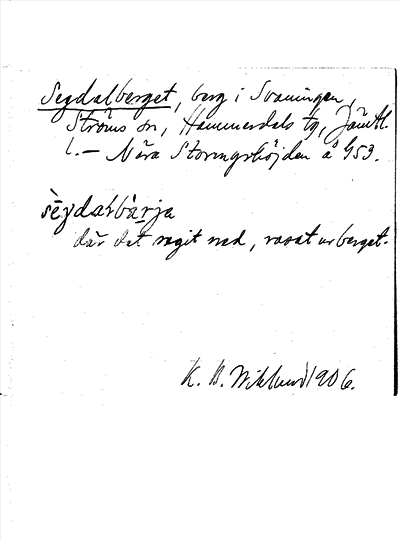 Segdalberget, berg i Svaningen,
Ströms sn, Hammerdals tg, Jämtl.
l. — Nära Storringshöjden å G53.
sègdaɫbærja
där det segit ned, rasat ur berget.
K. B. Wiklund 1906.